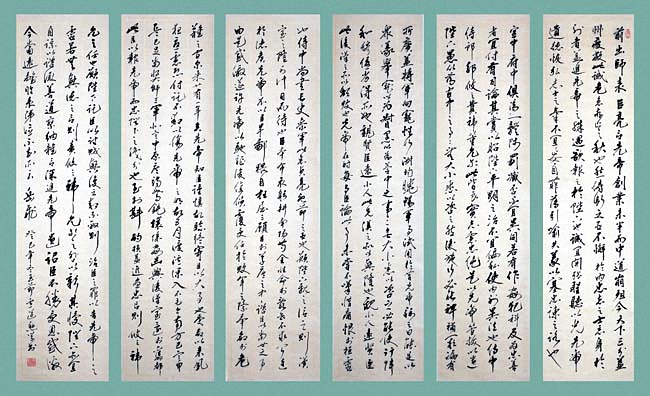 前出師表 臣亮言先帝創業未半而中道崩殂今天下三分益
州疲敝此誠危急存亡之秋也然侍衛之臣不懈於內忠志之士忘身於
外者蓋追先帝之殊遇欲報之於陛下也誠宜開張聖聽以光先帝
遺德恢弘志士之氣不宜妄自菲薄引喻失義以塞忠諫之路也
宮中府中俱為一體陟罰臧否不宜異同若有作奸犯科及為忠善
者宜付有司論其刑賞以昭陛下平明之治不宜偏私使內外異法也侍中
侍郎郭攸之費禕董允等此皆良實志慮忠純是以先帝簡拔以遺
陛下愚以為宮中之事事無大小悉以咨之然後施行必能裨補闕漏有
所廣益將軍向寵性行淑均曉暢軍事試用於昔日先帝稱之曰能是以
眾議舉寵以為督愚以為營中之事事無大小悉以咨之必能使行陣
和穆優劣得所也親賢臣遠小人此先漢所以興隆也親小人遠賢臣
此後漢所以傾頹也先帝在時每與臣論此事未嘗不嘆息痛恨於桓靈
也侍中尚書長史參軍此悉貞亮死節之臣也願陛下親之信之則漢
室之隆可計日而待也臣本布衣躬耕南陽苟全性命於亂世不求聞達
於諸侯先帝不以臣卑鄙猥自枉屈三顧臣於草廬之中諮臣以當世之事
由是感激遂許先帝以驅馳後值傾覆受任於敗軍之際奉命於危
難之間爾來廿有一年矣先帝知臣謹慎故臨終寄臣以大事也受命以來夙
夜憂嘆恐付託不效以傷先帝之明故五月渡瀘深入不毛今南方已定甲
兵已足當獎帥三軍北定中原庶竭駑鈍攘除奸凶興復漢室還於舊都
此臣所以報先帝而忠陛下之職分也至於斟酌損益進盡忠言則攸之禕
允之任也願陛下託臣以討賊興復之效不效則治臣之罪以告先帝之
靈若無興德之言則責攸之禕允等之咎以彰其慢陛下亦宜
自謀以諮諏善道察納雅言深追先帝遺詔臣不勝受恩感激
今當遠離臨表涕泣不知所云 岳飛 癸巳年